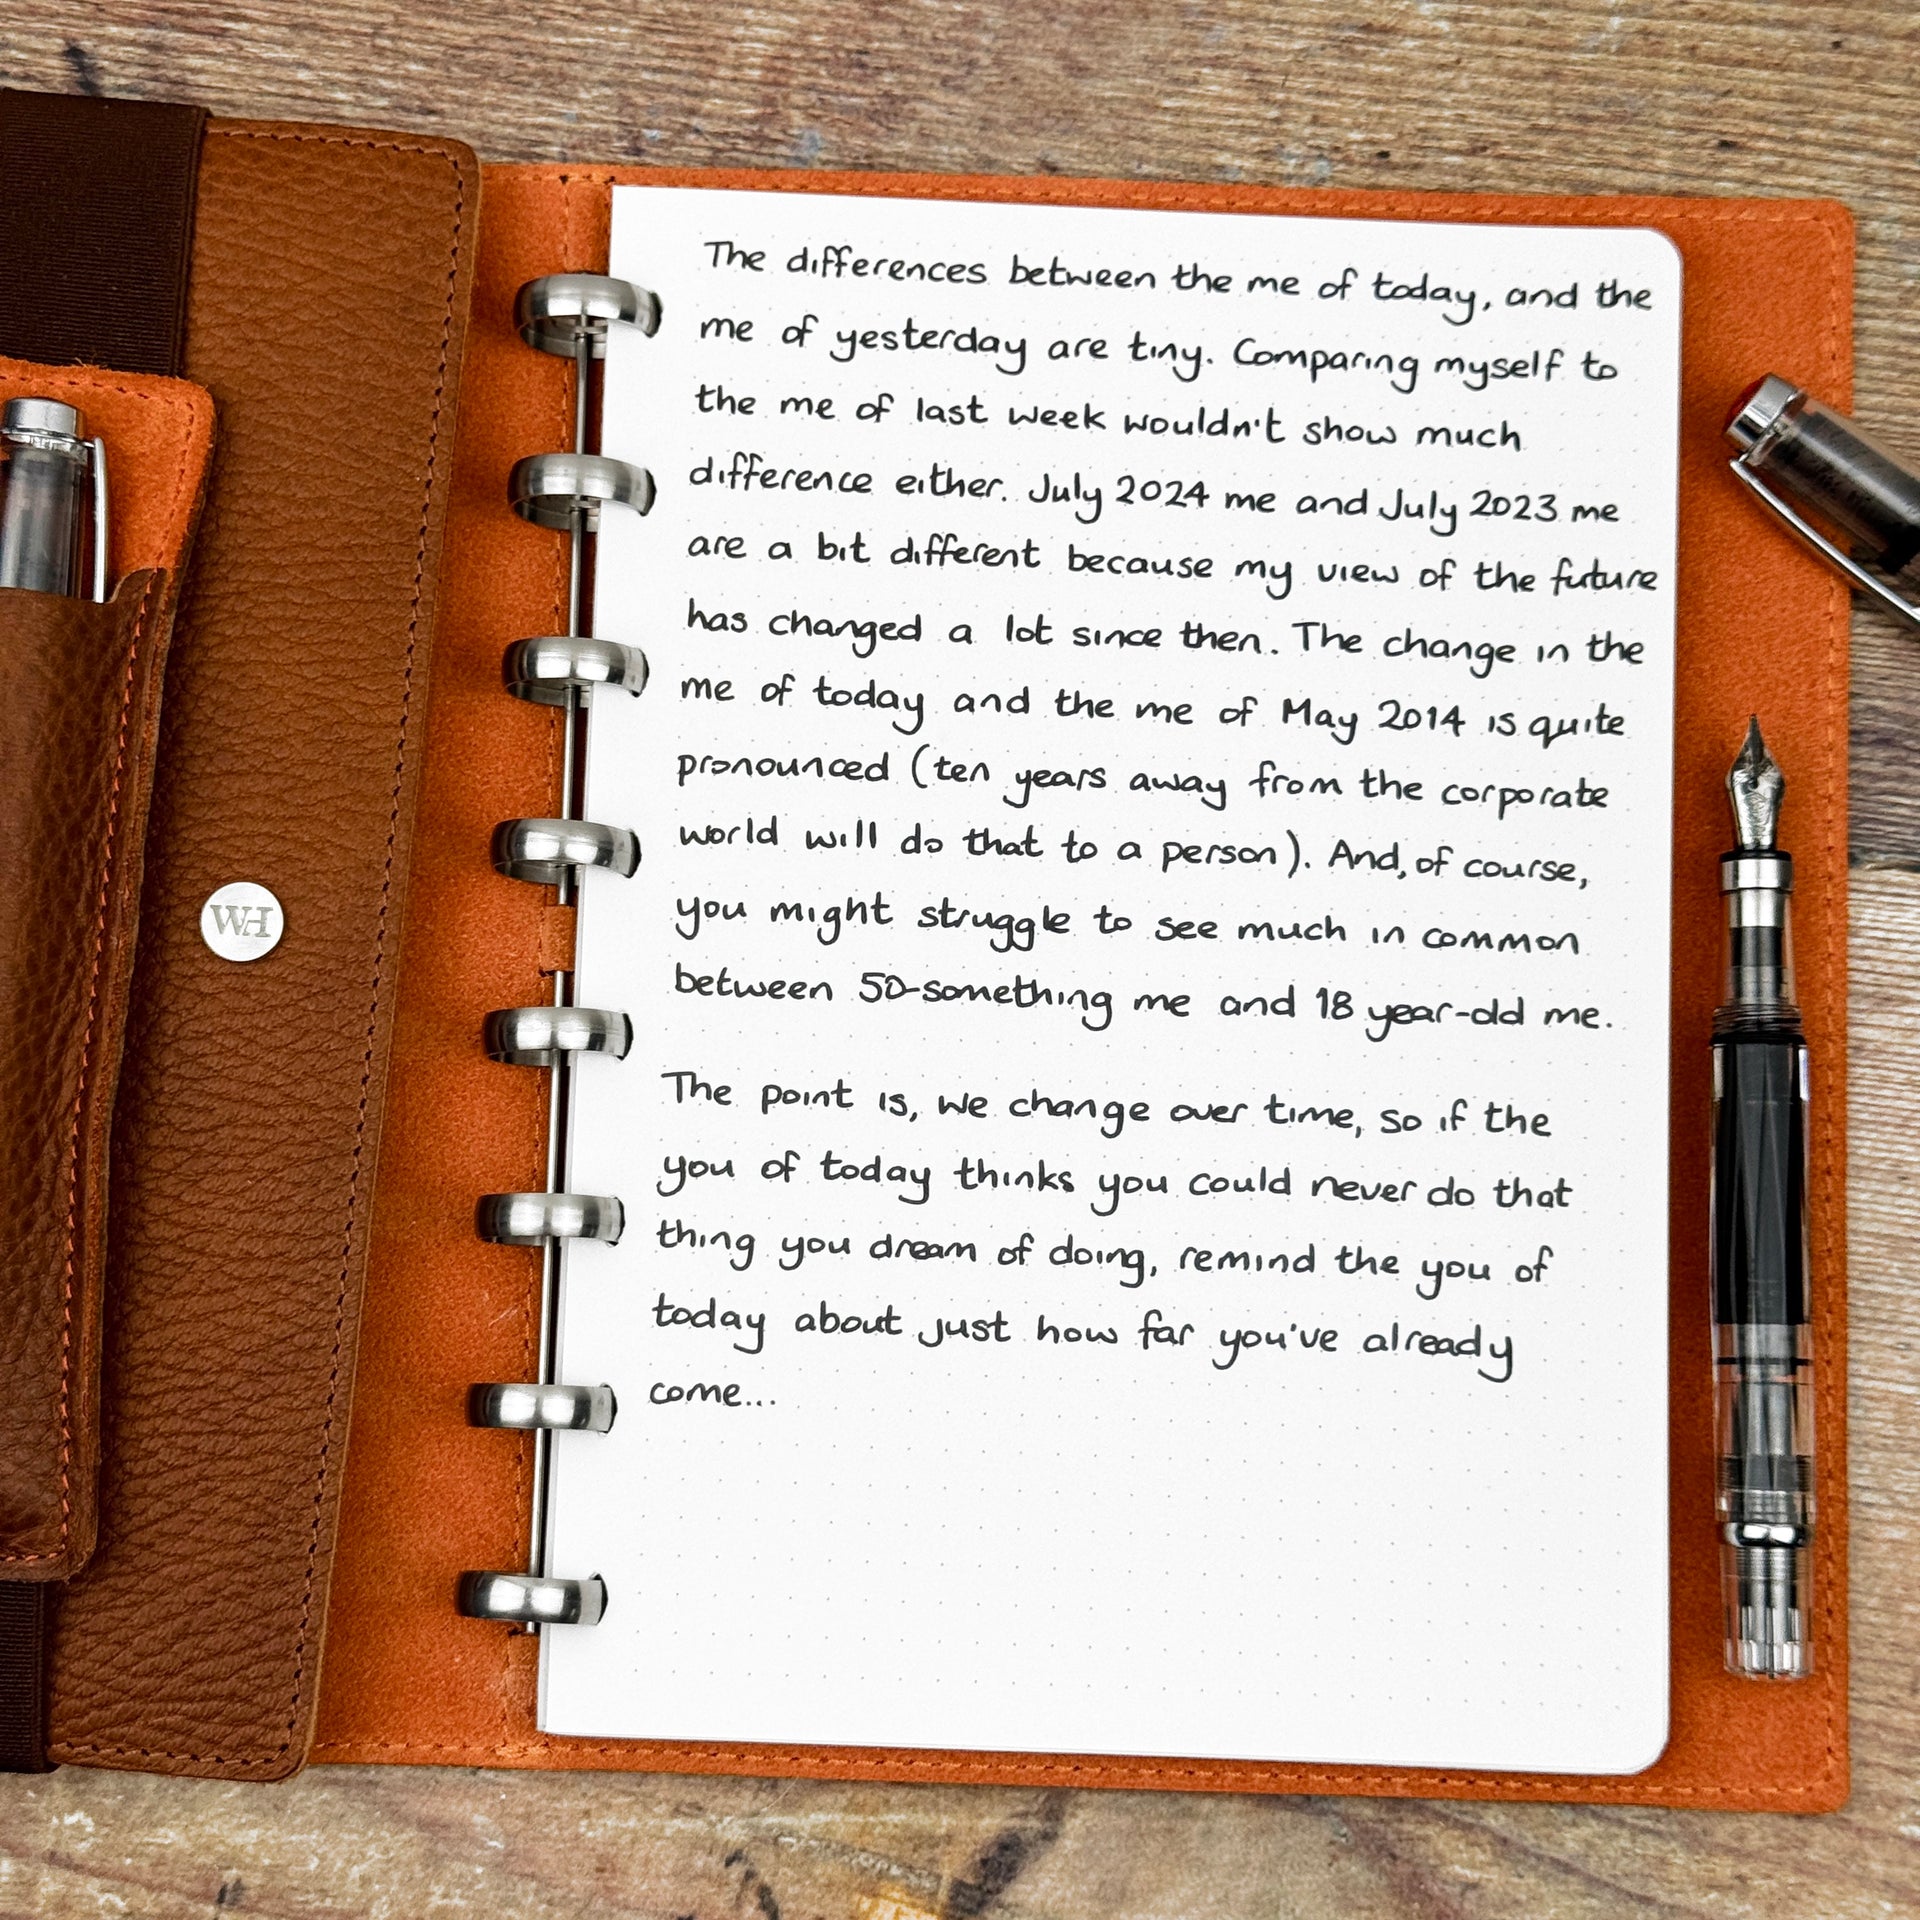 The differences between the me of today, and the
me of yesterday are tiny. Comparing myself to
the me of last week wouldn't show much
difference either. July 2024 me and July 2023 me
are a bit different because my view of the future
has changed a lot since then. The change in the
me of today and the me of May 2014 is quite
pronounced (ten years away from the corporate
world will do that to a person). And, of course,
you might struggle to see much in common
between 50-something me and 18 year-old me.
The point is, we change over time, so if the
you of today thinks you could never do that
thing you dream of doing, remind the you of
today about just how far you've already
come...
WH